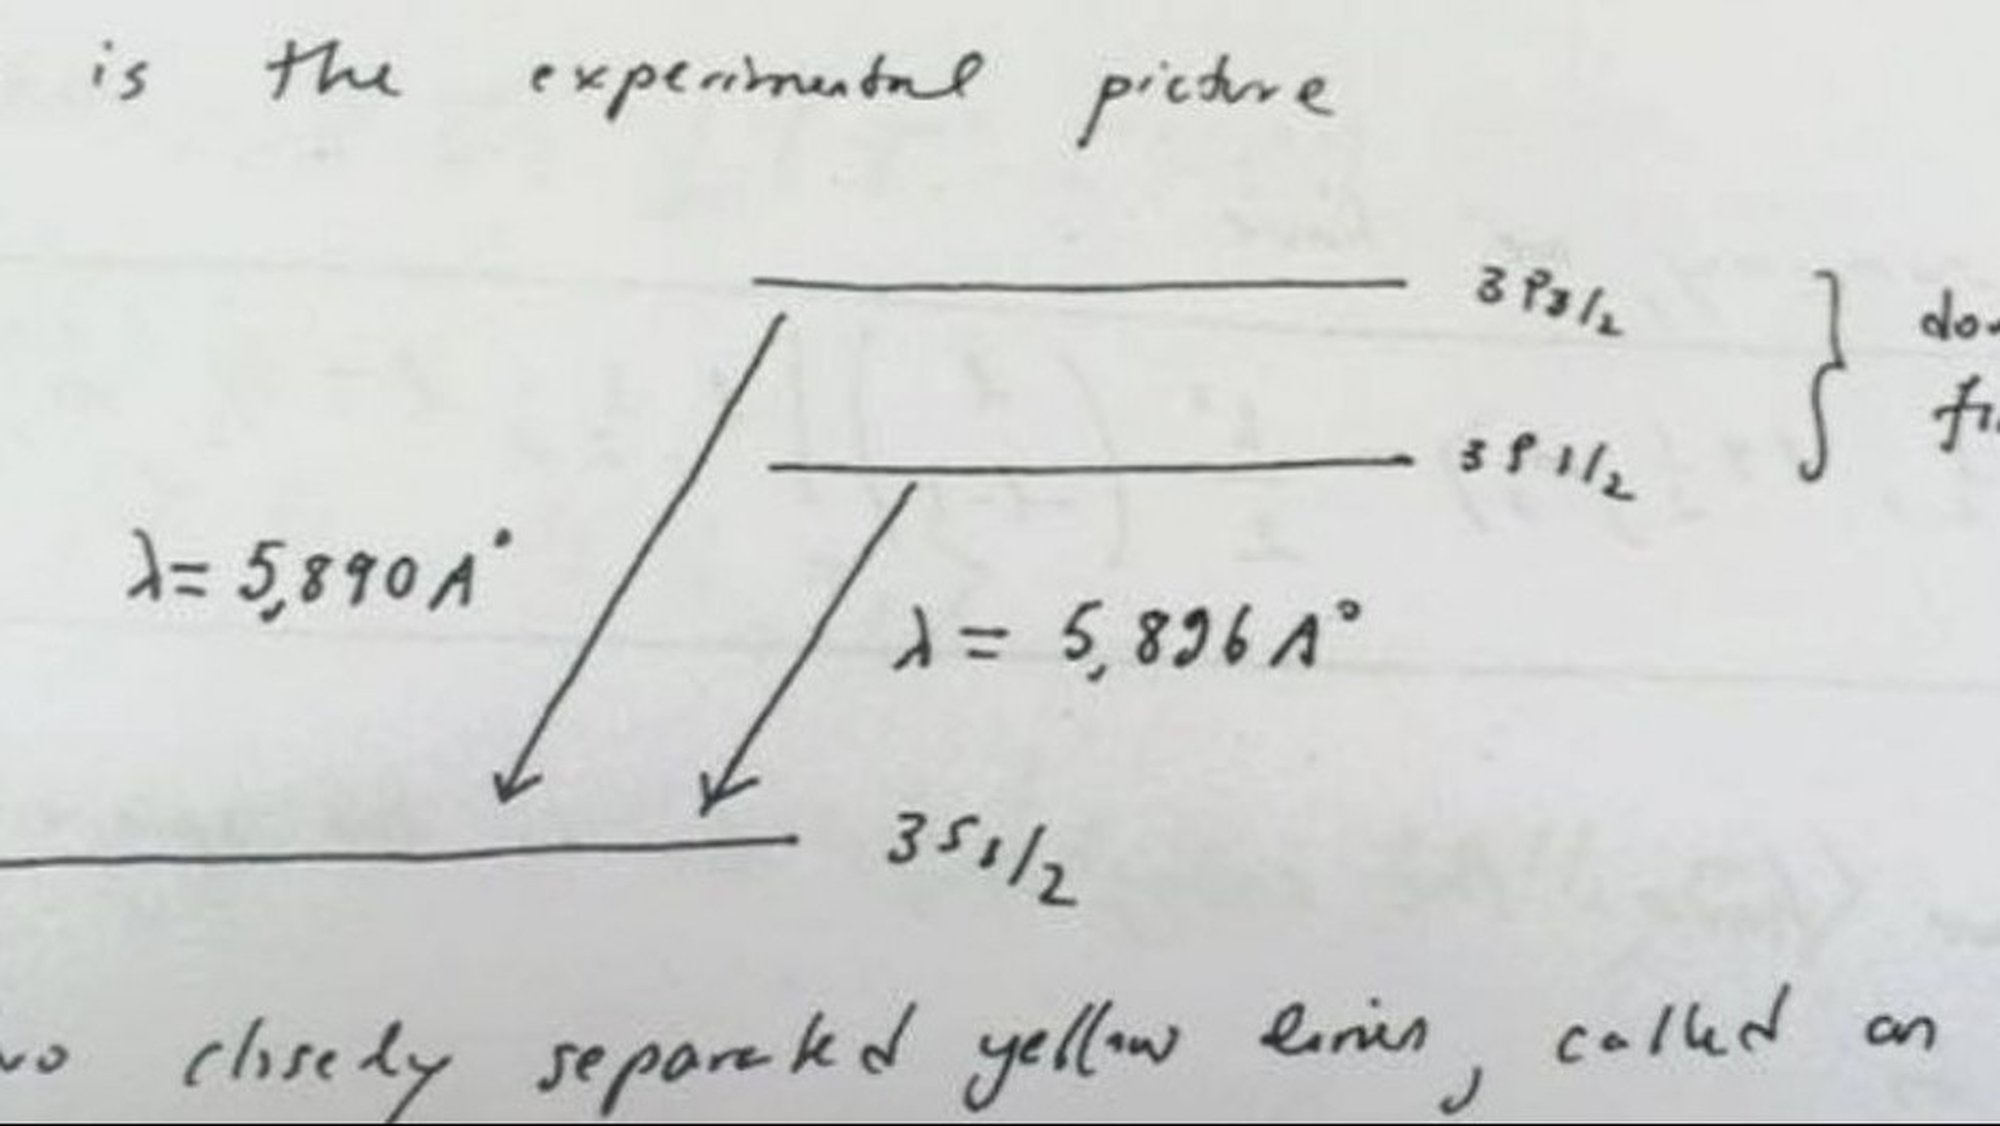 is the experimental picture
3P3/2
3P1/2
λ= 5,890 A°
λ = 5,896 A°
3S1/2
closely separated yellow lines, called an